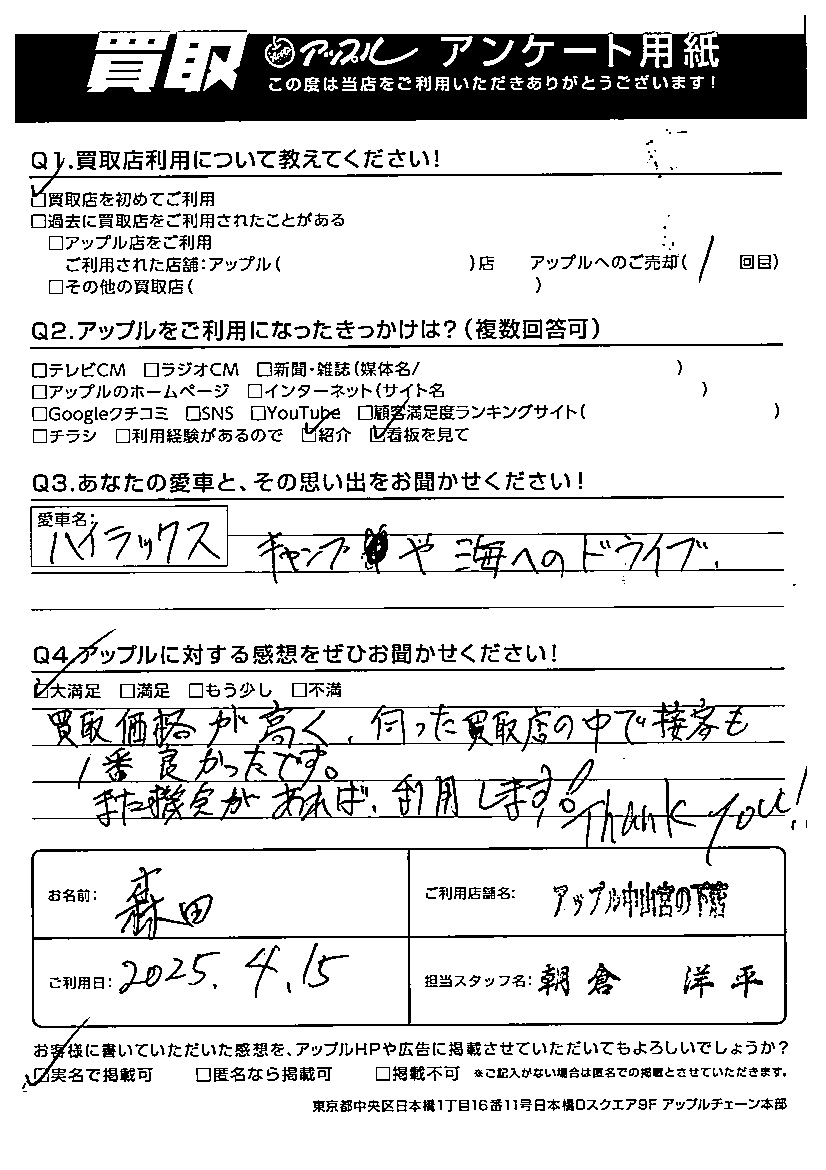 買取 アップル アンケート用紙
この度は当店をご利用いただきありがとうございます!
Q1.買取店利用について教えてください!
☑買取店を初めてご利用
□過去に買取店をご利用されたことがある
□アップル店をご利用
ご利用された店舗:アップル( )店 アップルへのご売却( 1 回目)
□その他の買取店( )
Q2.アップルをご利用になったきっかけは?(複数回答可)
□テレビCM □ラジオCM □新聞・雑誌(媒体名/ )
□アップルのホームページ □インターネット(サイト名 )
□Googleクチコミ □SNS □YouTube □顧客満足度ランキングサイト( )
□チラシ □利用経験があるので ☑紹介 ☑看板を見て
Q3.あなたの愛車と、その思い出をお聞かせください!
愛車名:
ハイラックス キャンプや海へのドライブ.
Q4.アップルに対する感想をぜひお聞かせください!
☑大満足 □満足 □もう少し □不満
買取価格が高く、伺った買取店の中で接客も
1番良かったです。
また機会があれば、利用します! Thank you!!
お名前: 森田 ご利用店舗名: アップル中山宮の下店
ご利用日: 2025. 4. 15 担当スタッフ名: 朝倉 洋平
お客様に書いていただいた感想を、アップルHPや広告に掲載させていただいてもよろしいでしょうか?
☑実名で掲載可 □匿名なら掲載可 □掲載不可 ※ご記入がない場合は匿名での掲載とさせていただきます。
東京都中央区日本橋1丁目16番11号日本橋Dスクエア9F アップルチェーン本部